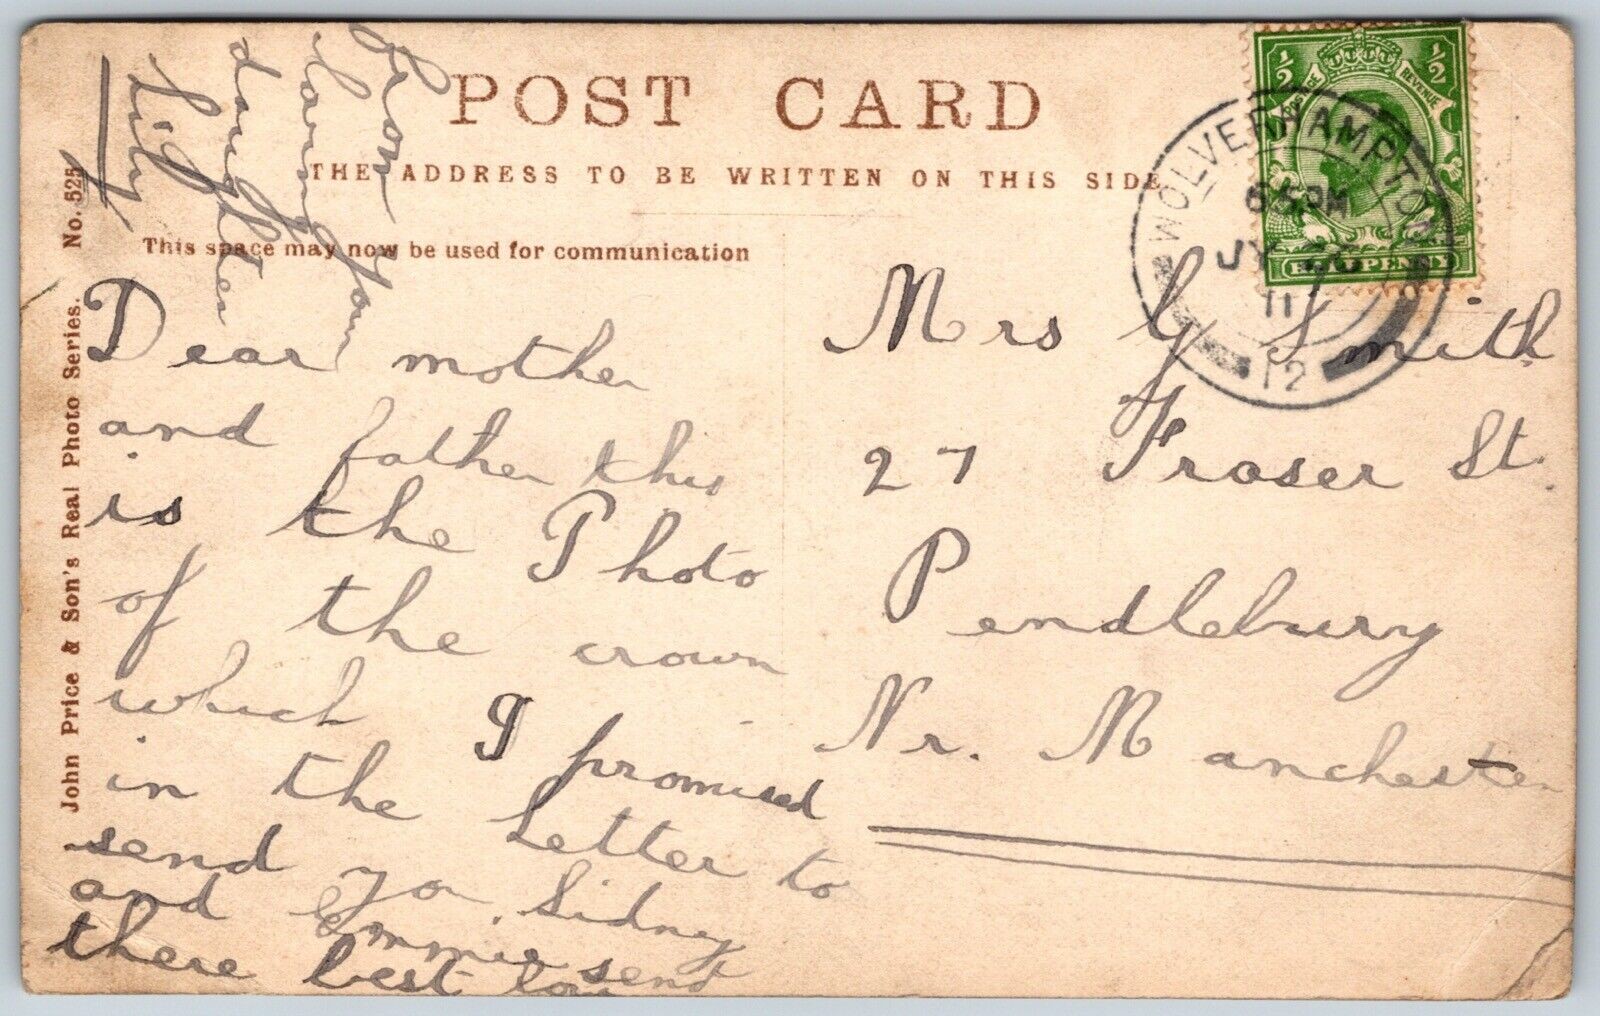 POST CARD
THE ADDRESS TO BE WRITTEN ON THIS SIDE
This space may now be used for communication
John Price & Son's Real Photo Series. No. 525
from
loving your
daughter
Lily
Dear mother
and father this
is the Photo
of the crown
which I promised
in the letter to
send yo Sidney
and Emmie send
there best lov
Mrs G Smith
27 Fraser St.
Pendlebury
Nr. Manchester
1/2 1/2
REVENUE
HALFPENNY
WOLVERHAMPTON
PM
JY
11
12